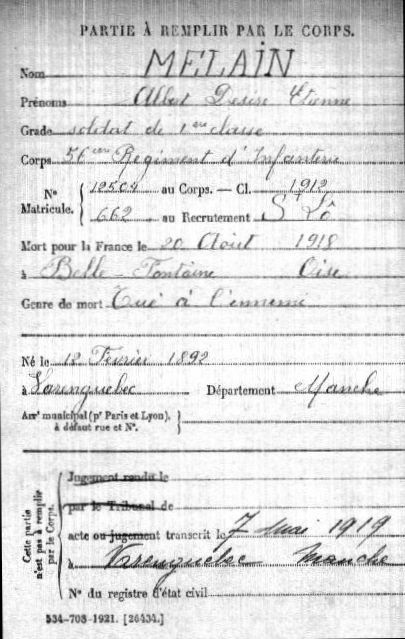 PARTIE À REMPLIR PAR LE CORPS.
Nom MELAIN
Prénoms Albert Desire Etienne
Grade soldat de 1ere classe
Corps 36eme Regiment d'Infanterie
N° Matricule. { 12504 au Corps. — Cl. 1912
662 au Recrutement St Lô
Mort pour la France le 20 Aout 1918
à Belle-Fontaine Oise
Genre de mort Tué à l'ennemi
Né le 12 Fevrier 1892
à Varenguebec Département Manche
Arrt municipal (pr Paris et Lyon),
à défaut rue et N°.
Cette partie n'est pas à remplir par le Corps.
Jugement rendu le
par le Tribunal de
acte ou jugement transcrit le 7 Mai 1919
à Varenguebec Manche
N° du registre d'état civil
534-708-1921. [26434.]